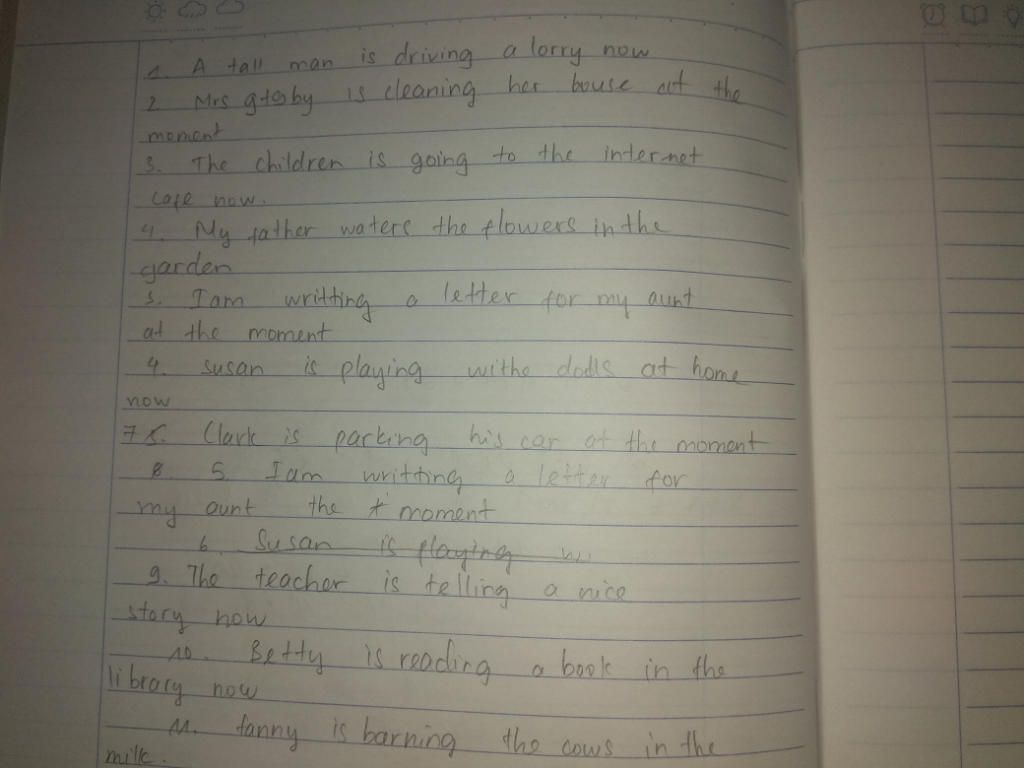 1. A tall man is driving a lorry now
2 Mrs is cleaning her house at the
moment
3. The children is going to the internet
cafe now.
4. My father waters the flowers in the
garden
5. I am writting a letter for my aunt
at the moment
4. susan is playing withe dolls at home
now
7 Clark is parking his car at the moment
8 5. I am writting a letter for
my aunt the t moment
6. Susan is playing
9. The teacher is telling a nice
story now
10. Betty is reading a book in the
library now
11. fanny is barning the cows in the
milk.